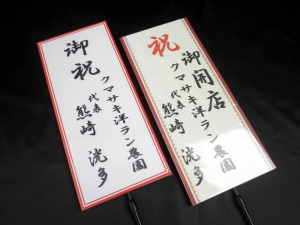 御祝
クマサキ洋ラン農園
代表 熊崎 洸多
祝
御開店
クマサキ洋ラン農園
代表 熊崎 洸多